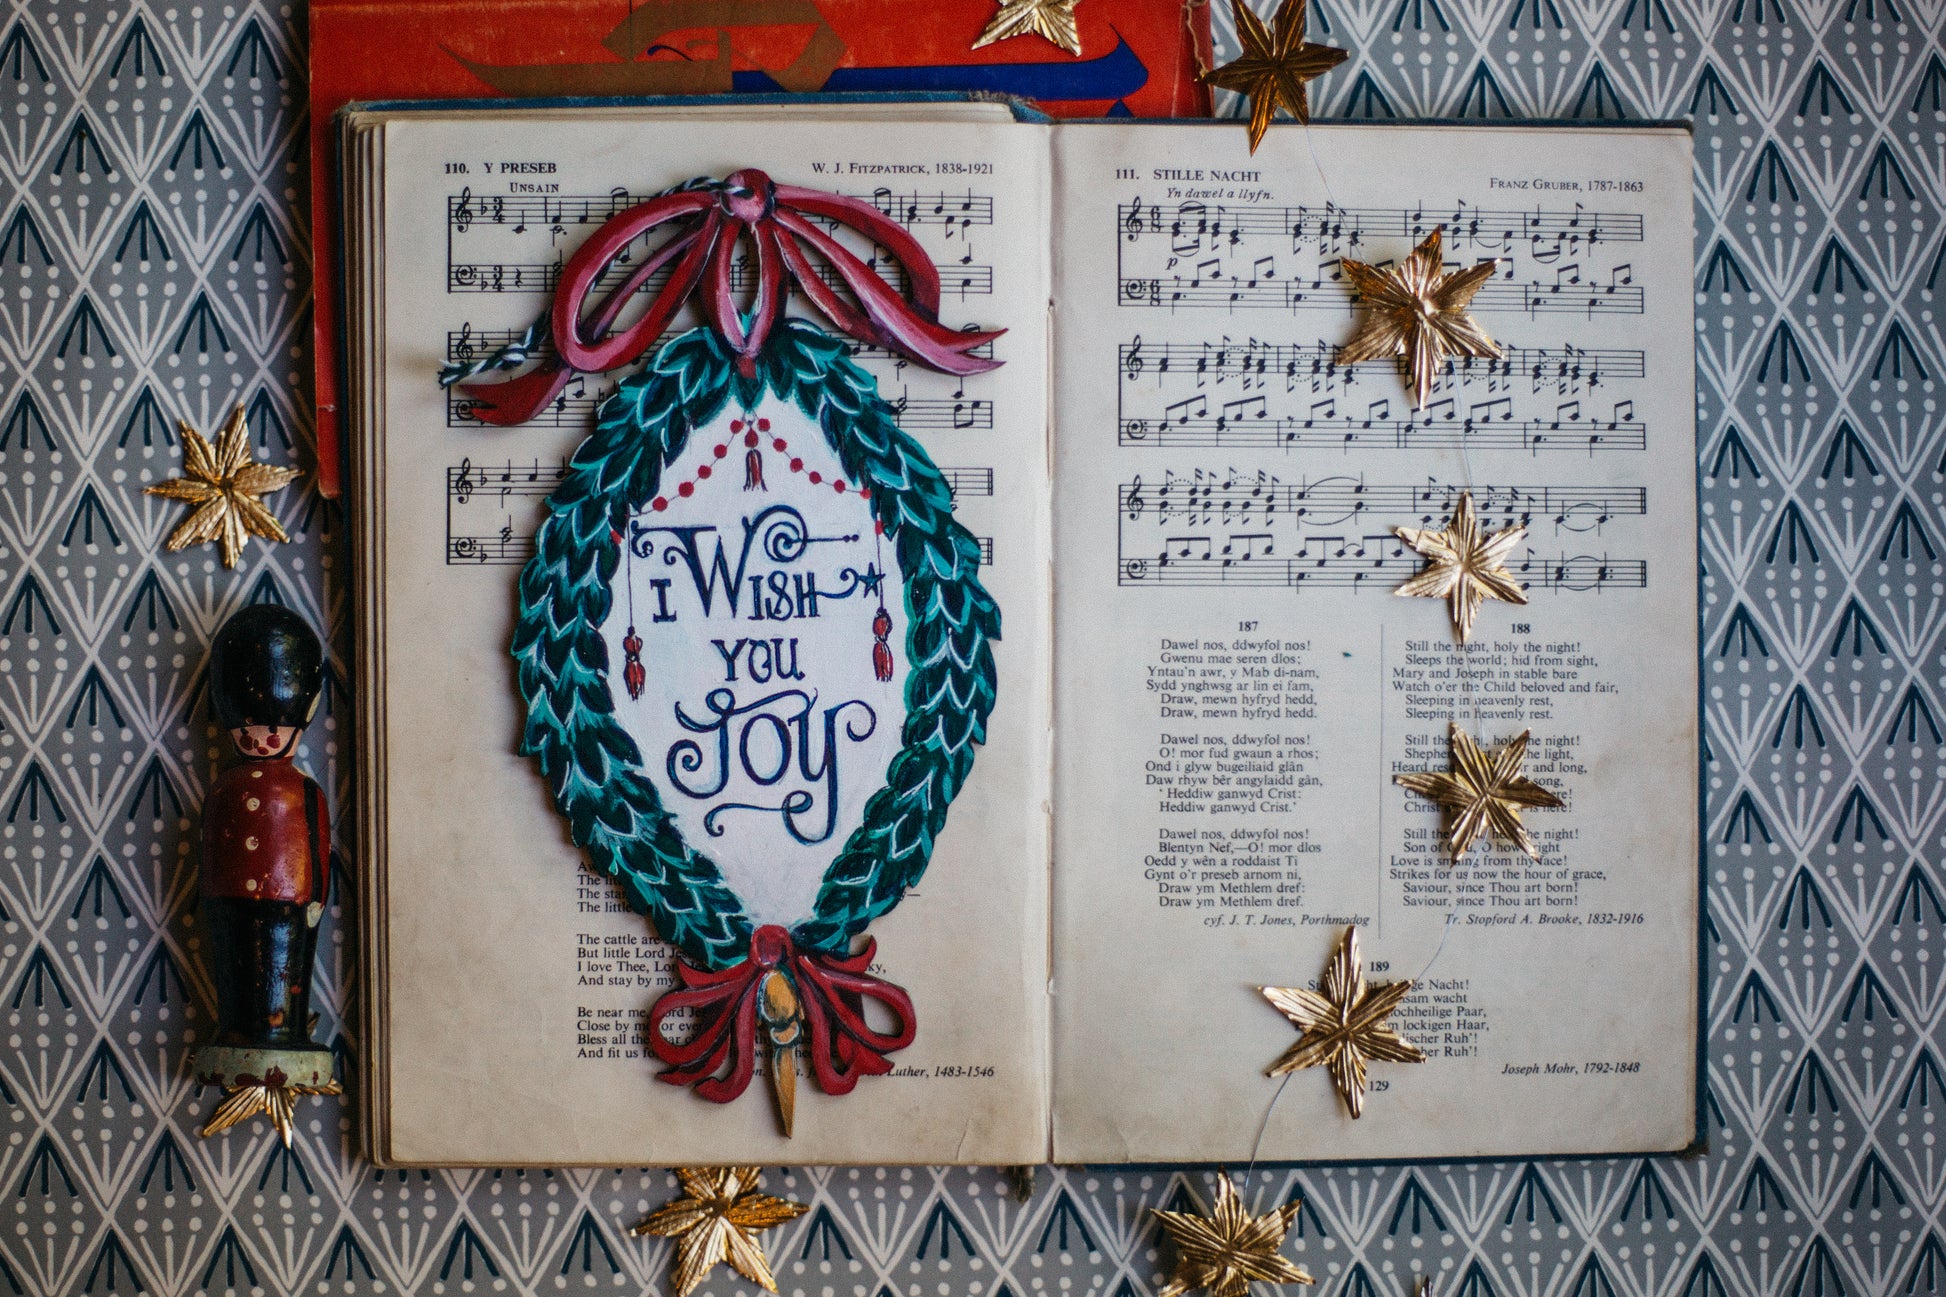 110. Y PRESEB
W. J. FITZPATRICK, 1838-1921
UNSAIN
I WISH
YOU
JOY
The
The
The little
The cattle are
But little Lord
I love Thee,
And stay by my
Be near me,
Close by
Bless all
And fit us
Luther, 1483-1546
111. STILLE NACHT
FRANZ GRUBER, 1787-1863
Yn dawel a llyfn.
p
187
Dawel nos, ddwyfol nos!
Gwenu mae seren dlos;
Yntau'n awr, y Mab di-nam,
Sydd ynghwsg ar lin ei fam,
Draw, mewn hyfryd hedd,
Draw, mewn hyfryd hedd.
Dawel nos, ddwyfol nos!
O! mor fud gwaun a rhos;
Ond i glyw bugeiliaid glân
Daw rhyw bêr angylaidd gân,
‘ Heddiw ganwyd Crist:
Heddiw ganwyd Crist.’
Dawel nos, ddwyfol nos!
Blentyn Nef,—O! mor dlos
Oedd y wên a roddaist Ti
Gynt o'r preseb arnom ni,
Draw ym Methlem dref:
Draw ym Methlem dref.
cyf. J. T. Jones, Porthmadog
188
Still the night, holy the night!
Sleeps the world; hid from sight,
Mary and Joseph in stable bare
Watch o'er the Child beloved and fair,
Sleeping in heavenly rest,
Sleeping in heavenly rest.
Still the night, holy the night!
the light,
Heard and long,
song,
Christ is here!
Still the night!
Son of God, O how bright
Love is smiling from thy face!
Strikes for us now the hour of grace,
Saviour, since Thou art born!
Saviour, since Thou art born!
Tr. Stopford A. Brooke, 1832-1916
189
Nacht!
wacht
hochheilige Paar,
lockigen Haar,
Ruh'!
Ruh'!
Joseph Mohr, 1792-1848
129